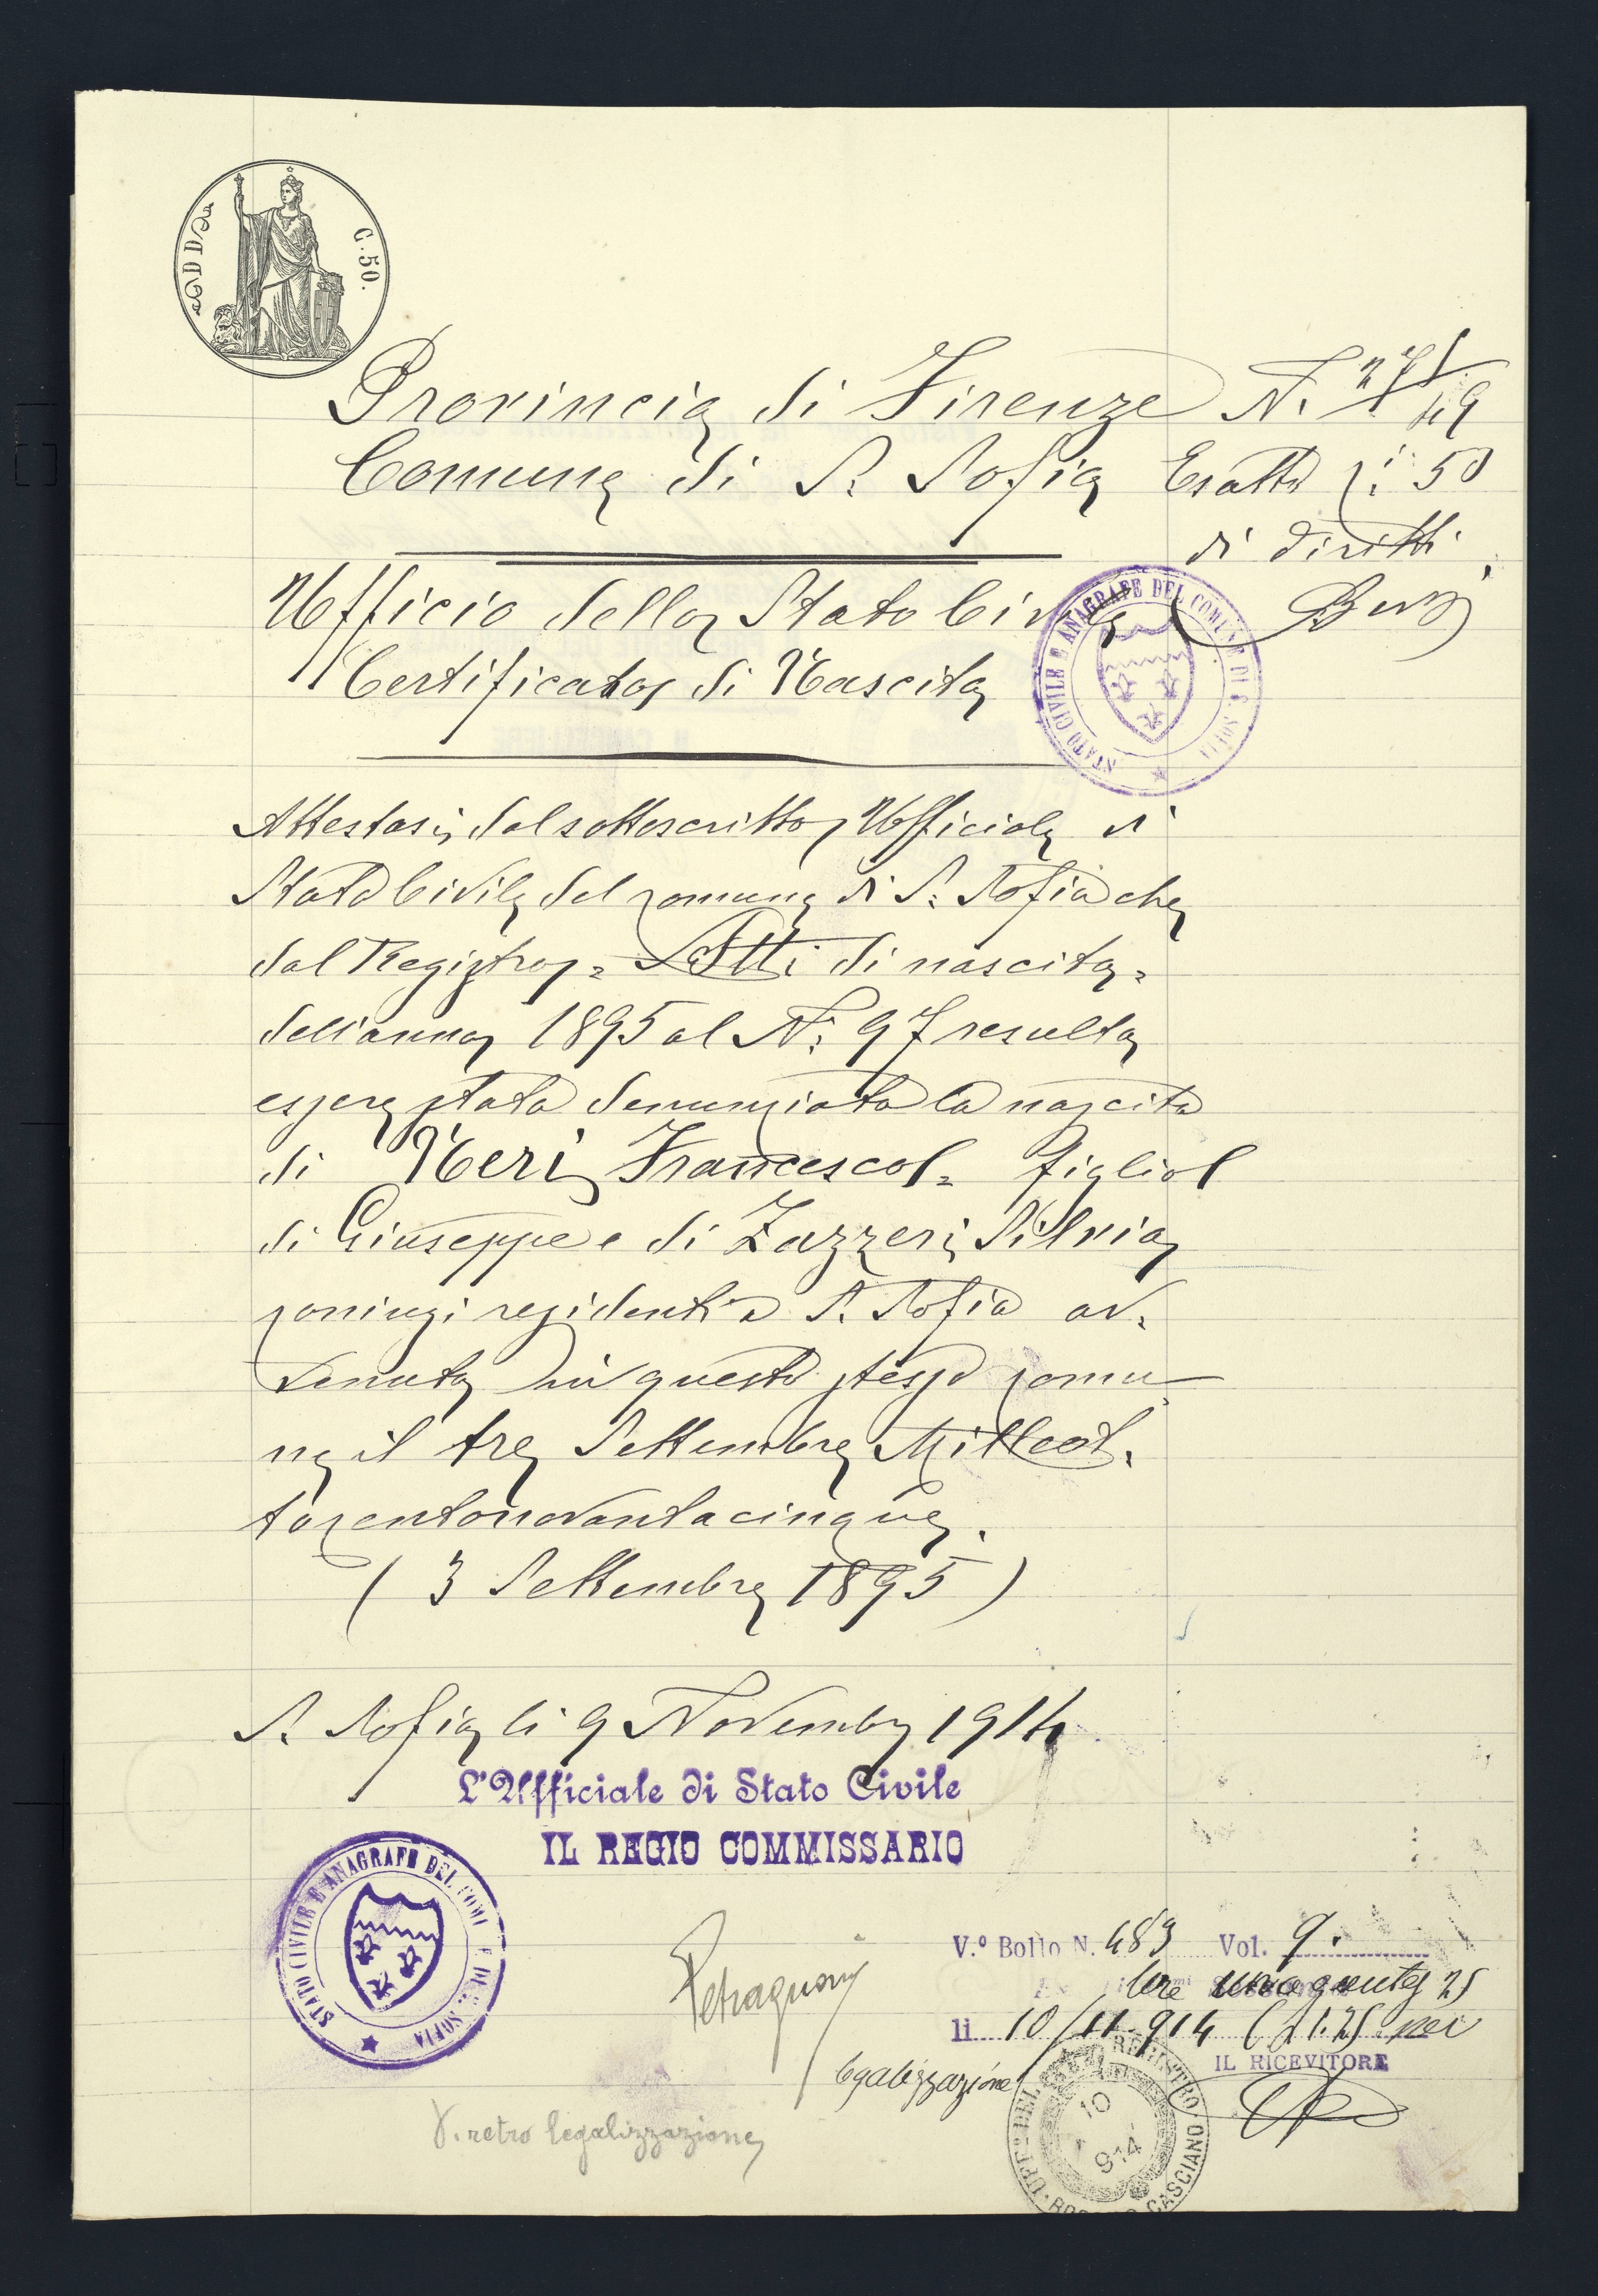 C. 50.
Provincia di Firenze
Comune di S. Sofia
Esatto c.i 50
di diritti
Ufficio dello Stato Civile
Certificato di Nascita
STATO CIVILE E ANAGRAFE DEL COMUNE DI S. SOFIA
Attestasi dal sottoscritto Ufficiale di
Stato Civile del comune di S. Sofia che
dal Registro = Atti di nascita =
dell'anno 1895 al N: 97 resulta
essere stata denunziata la nascita
di Neri Francesco = figlio
di Giuseppe e di Zazzeri Silvia
coniugi residenti a S. Sofia av=
venuta in questo stesso comu-
ne il tre Settembre Milleot=
tocentonovantacinque.
( 3 Settembre 1895 )
S. Sofia li 9 Novembre 1914
L'Ufficiale di Stato Civile
IL REGIO COMMISSARIO
STATO CIVILE E ANAGRAFE DEL COMUNE DI S. SOFIA
V.º Bollo N. 483 Vol. 9.
lire
li 10/11-914 (£ 1.25 per
IL RICEVITORE
legalizzazione
10
914
REGISTRO
CASCIANO
V. retro legalizzazione